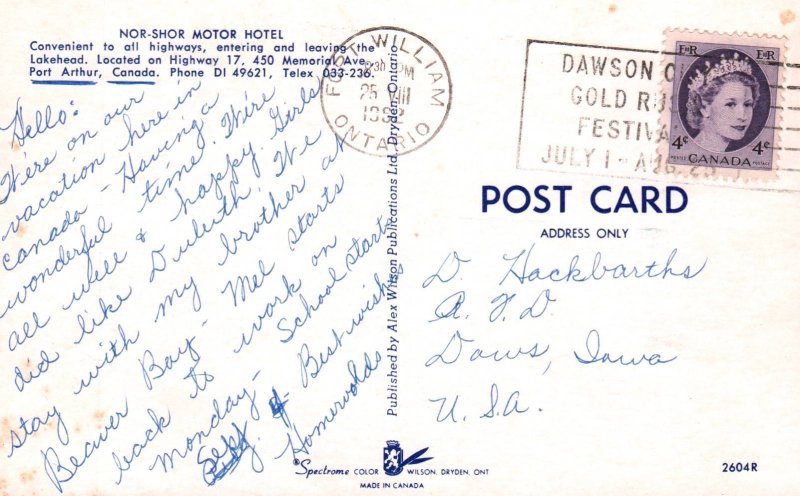 NOR-SHOR MOTOR HOTEL
Convenient to all highways, entering and leaving the
Lakehead. Located on Highway 17, 450 Memorial Ave.
Port Arthur, Canada. Phone DI 49621, Telex 033-236.
Hello:
We're on our
vacation here in
Canada - Having a
wonderful time. We're
all well & happy. Girls
did like Duluth. We
stay with my brother at
Beaver Bay - Mel starts
back to work on
Monday - School starts
Best wishes
Homervolds
Published by Alex Wilson Publications Ltd., Dryden, Ontario
FORT WILLIAM
PM
25 VIII
ONTARIO
DAWSON
GOLD
FESTIVA
JULY 1 - A
E II R E II R
4¢ 4¢
POSTES CANADA POSTAGE
POST CARD
ADDRESS ONLY
D. Hackbarths
R. F. D.
Daws, Iowa
U.S.A.
Spectrome COLOR WILSON, DRYDEN, ONT
MADE IN CANADA
2604R